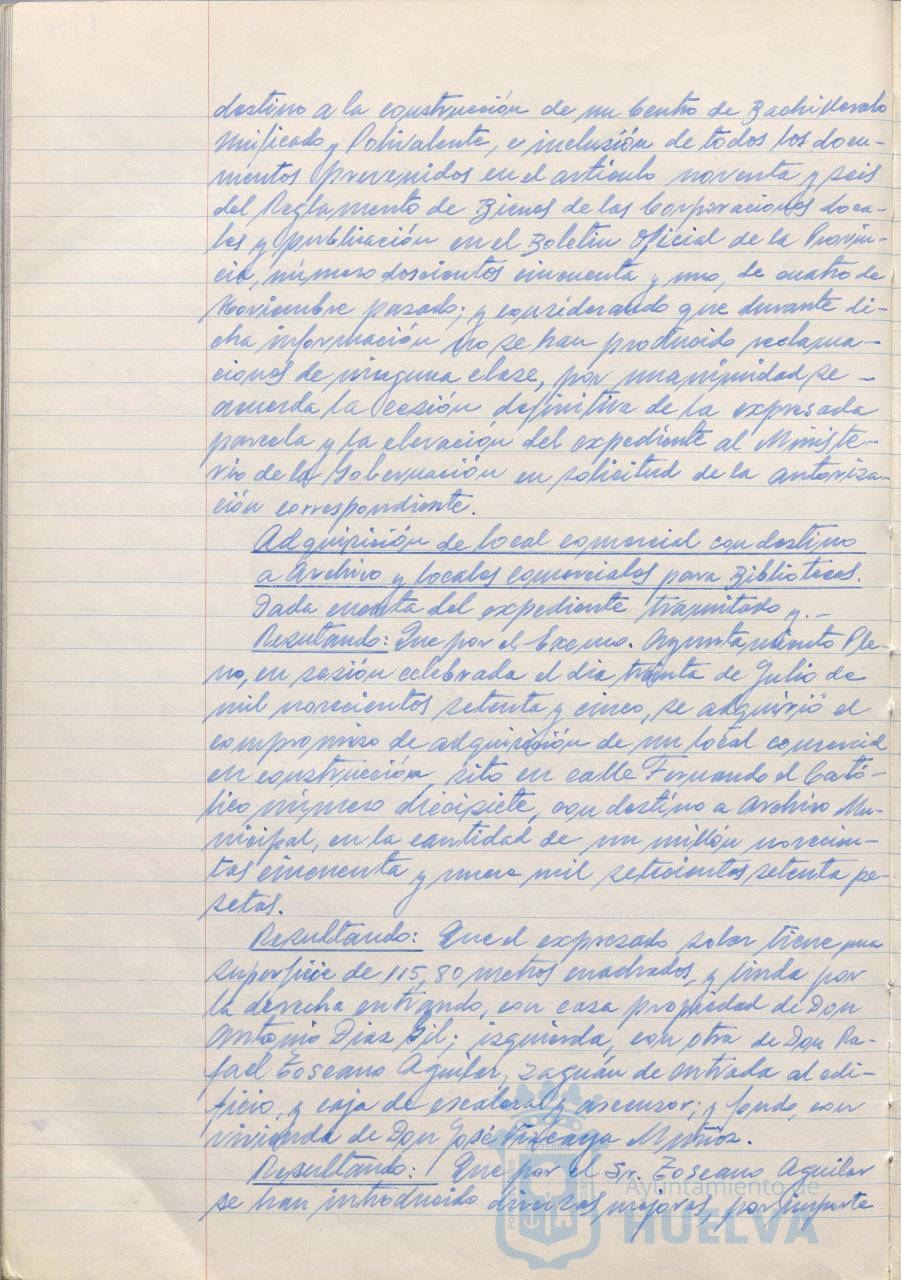 destino a la construcción de un Centro de Bachillerato
Unificado y Polivalente, e inclusión de todos los docu-
mentos prevenidos en el artículo noventa y seis
del Reglamento de Bienes de las Corporaciones Loca-
les y publicación en el Boletín Oficial de la Provin-
cia, número doscientos cincuenta y uno, de cuatro de
Noviembre pasado; y considerando que durante di-
cha información no se han producido reclama-
ciones de ninguna clase, por unanimidad se -
acuerda la cesión definitiva de la expresada
parcela y la elevación del expediente al Ministe-
rio de la Gobernación en solicitud de la autoriza-
ción correspondiente.
Adquisición de local comercial con destino
a Archivo y locales comerciales para Bibliotecas.
Dada cuenta del expediente tramitado y.-
Resultando: Que por el Excmo. Ayuntamiento Ple-
no, en sesión celebrada el día treinta de Julio de
mil novecientos setenta y cinco, se adquirió el
compromiso de adquisición de un local comercial
en construcción sito en calle Fernando el Cató-
lico número diecisiete, con destino a Archivo Mu-
nicipal, en la cantidad de un millón novecien-
tas cincuenta y nueve mil setecientas setenta pe-
setas.
Resultando: Que el expresado solar tiene una
superficie de 115,80 metros cuadrados, y linda por
la derecha entrando, con casa propiedad de Don
Antonio Diaz Gil; izquierda, con otra de Don Ra-
fael Toscano Aguilar, zaguán de entrada al edi-
ficio, y caja de escaleras y ascensor; y fondo, con
vivienda de Don José Vizcaya Muñoz.
Resultando: Que por el Sr. Toscano Aguilar
se han introducido diversas mejoras, por importe
Ayuntamiento de
HUELVA